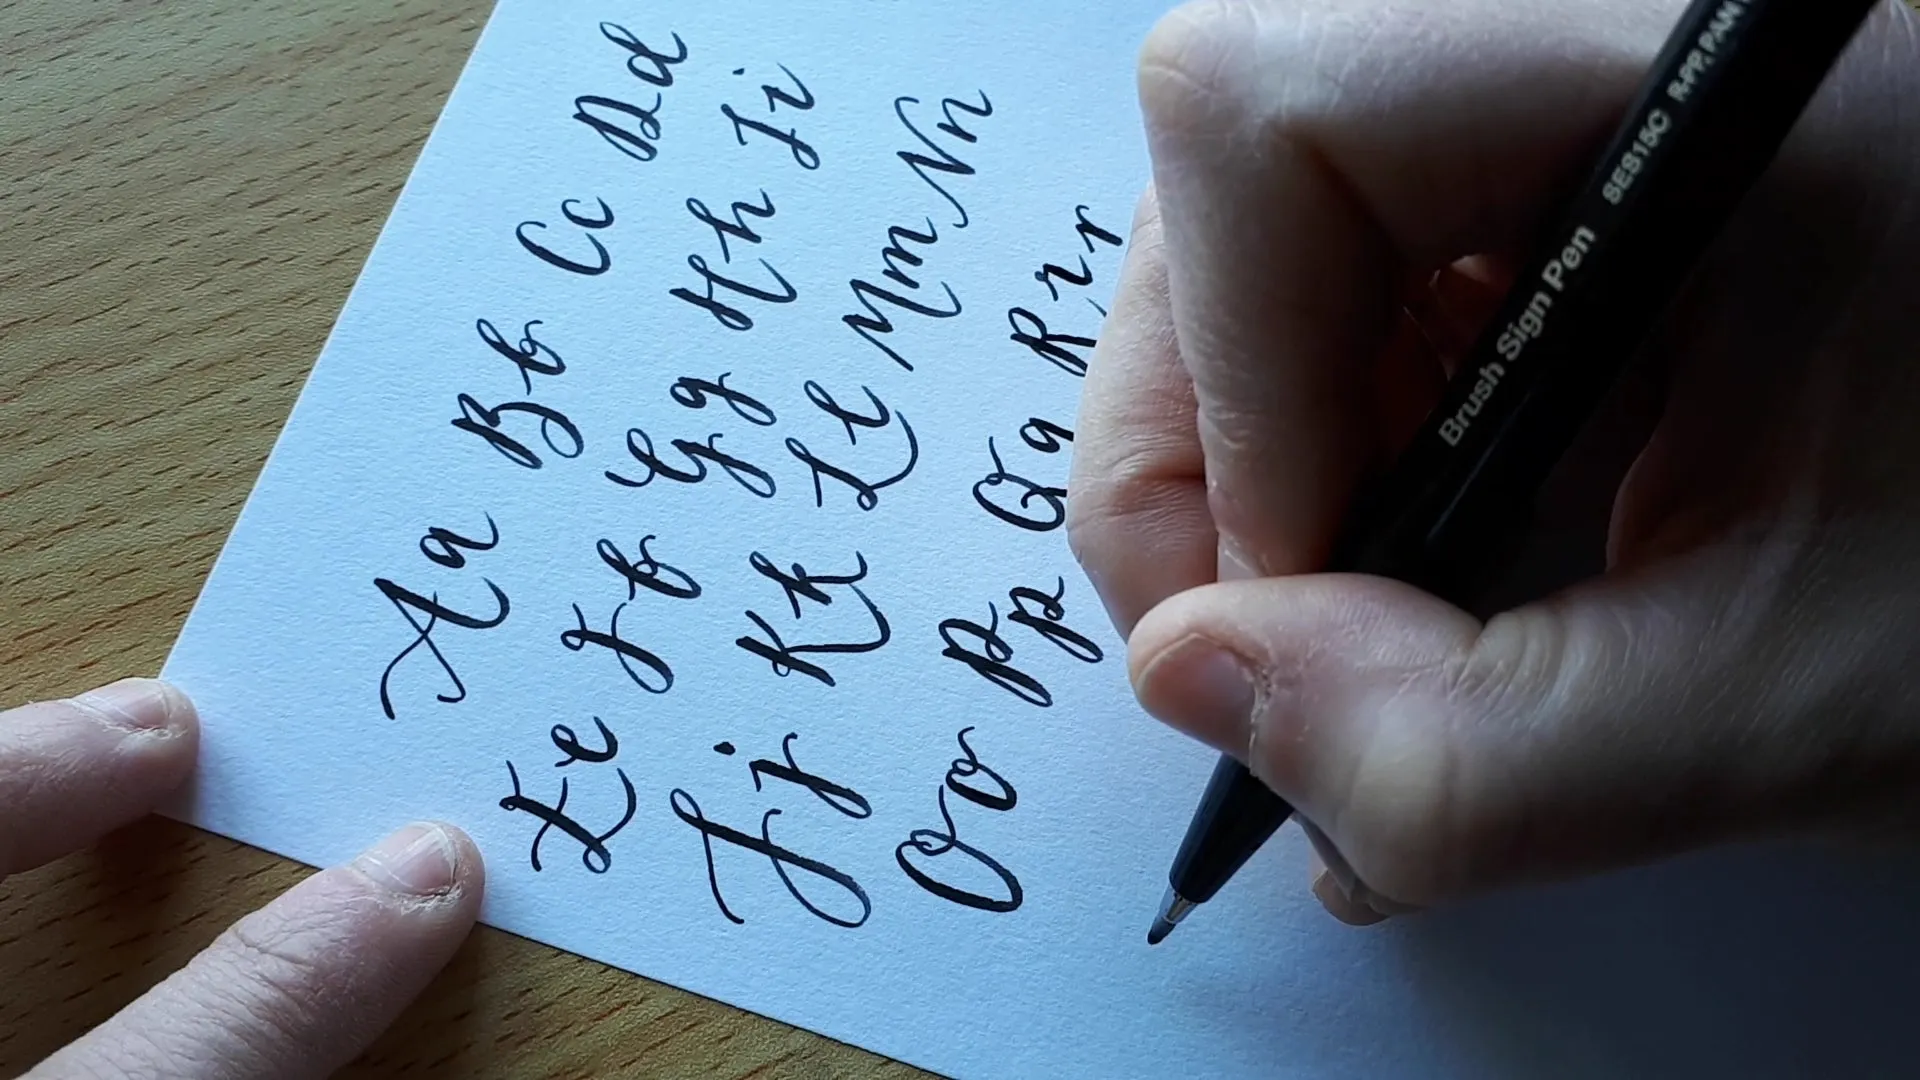 Aa Bb Cc Dd
Ee Ff Gg Hh Ii
Jj Kk Ll Mm Nn
Oo Pp Qq Rr
Brush Sign Pen SES15C